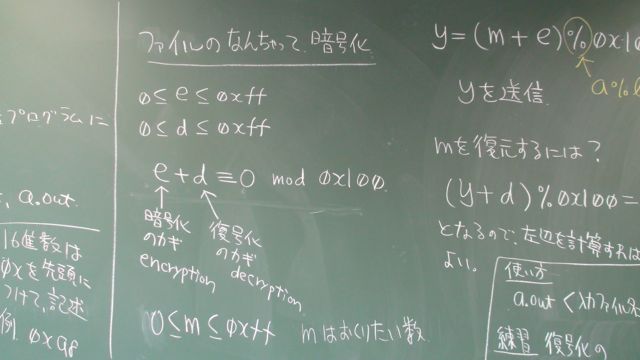 プログラムに
a.out
16進数は
0xを先頭に
つけて、記述
例 0xa8
ファイルのなんちゃって暗号化
0 ≤ e ≤ 0xff
0 ≤ d ≤ 0xff
e + d ≡ 0 mod 0x100
暗号化のカギ encryption
復号化のカギ decryption
0 ≤ m ≤ 0xff mはおくりたい数
y = (m + e) % 0x10
a%b
yを送信
mを復元するには?
(y + d) % 0x100 =
となるので、左辺を計算すれば
よい。
使い方
a.out < 入力ファイル名
練習 復号化の